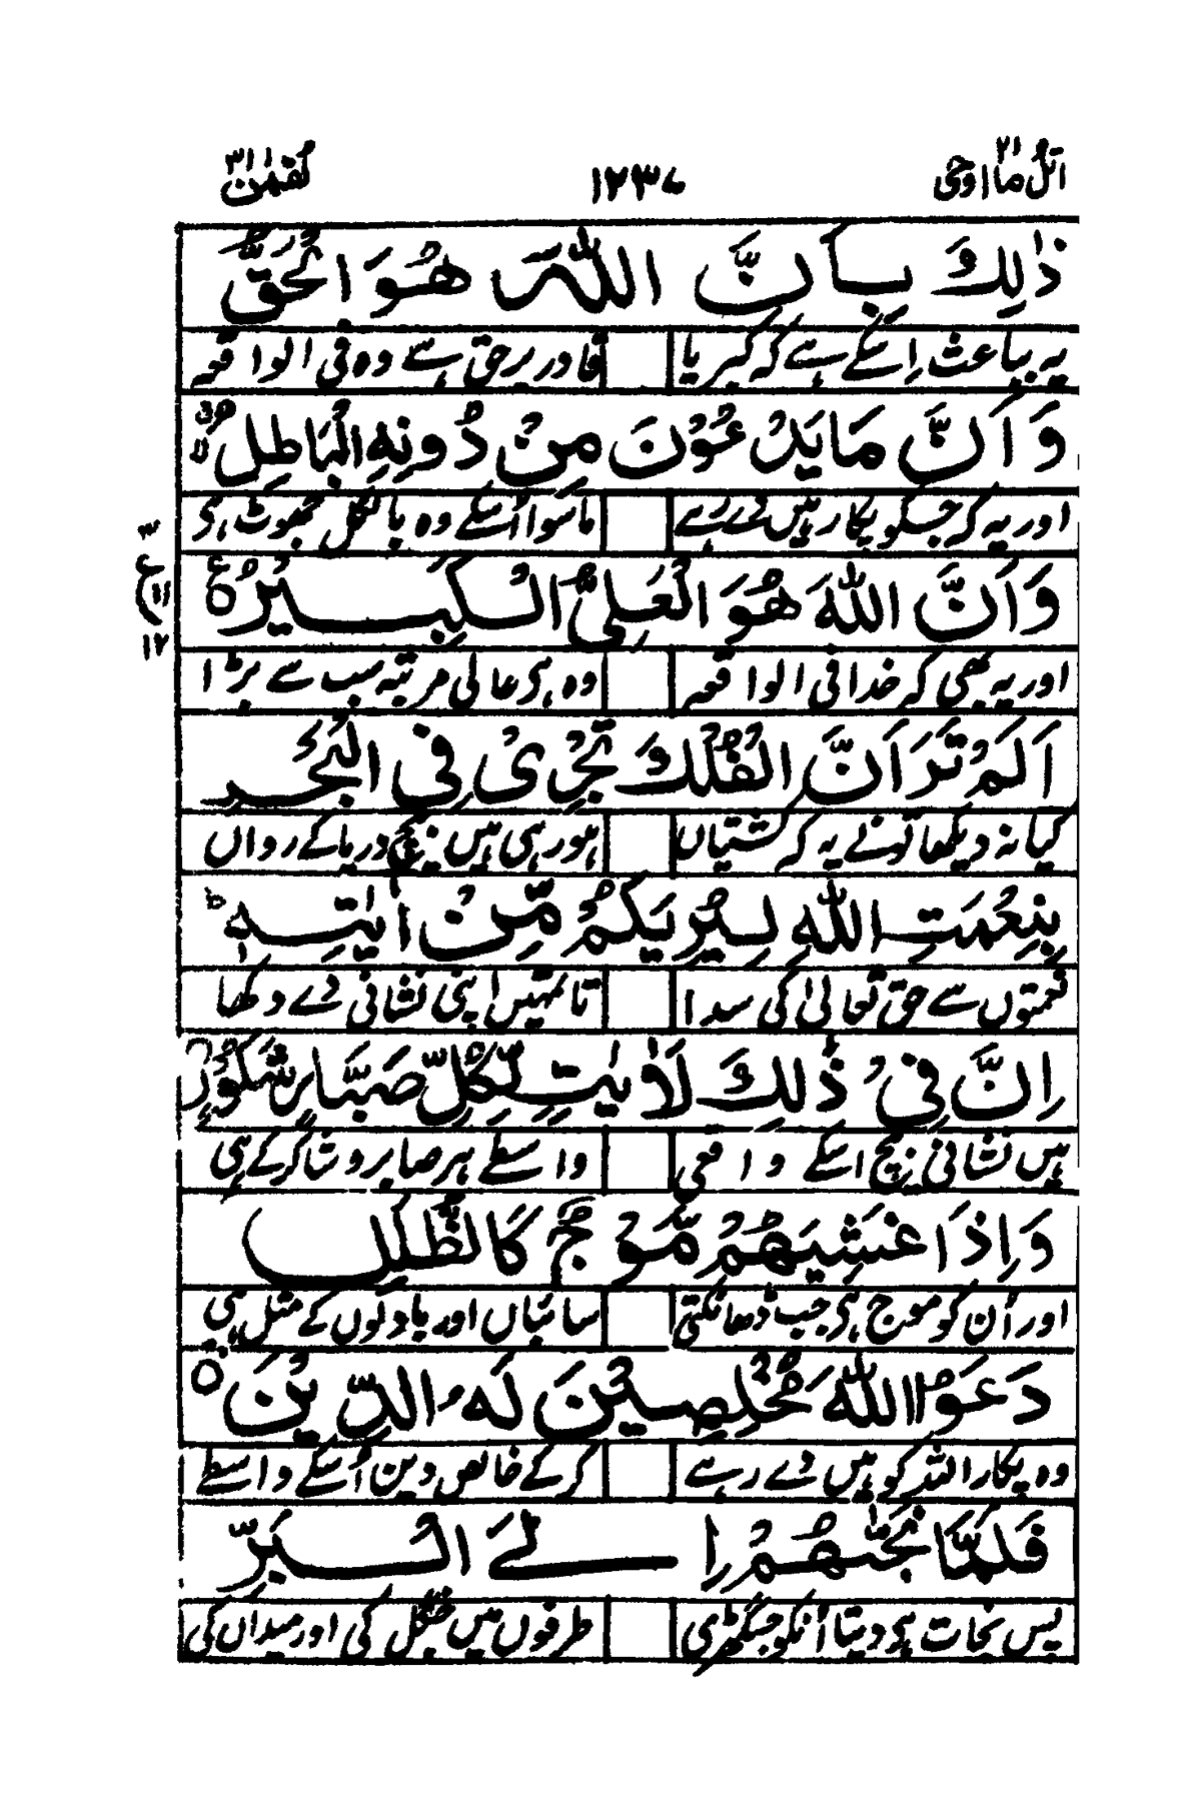 اتل ما اوحی ۲۱
۱۲۳۷
لقمٰن ۳۱
ذٰلِكَ بِاَنَّ اللّٰهَ هُوَ الْحَقُّ
یہ بباعث اِسکے ہے کہ کبریا قادر برحق ہے وہ فی الواقعہ
وَاَنَّ مَا يَدْعُوْنَ مِنْ دُوْنِهِ الْبَاطِلُ
اور یہ کہ جسکو پکار ہیں دے رہے ماسوا اُسکے وہ بالکل جھوٹ ہی
وَاَنَّ اللّٰهَ هُوَ الْعَلِىُّ الْكَبِيْرُ ۝ ع
۳
ع
۱۱
۱۲
اور یہ بھی کہ خدا فی الواقعہ وہ ہی عالی مرتبہ سب سے بڑا
اَلَمْ تَرَ اَنَّ الْفُلْكَ تَجْرِىْ فِى الْبَحْرِ
کیا نہ دیکھا تونے یہ کہ کشتیاں ہو رہی ہیں بیچ دریا کے رواں
بِنِعْمَتِ اللّٰهِ لِيُرِيَكُمْ مِّنْ اٰيٰتِهٖ ط
نعمتوں سے حق تعالیٰ کی سدا تا تمہیں اپنی نشانی دے دکھا
اِنَّ فِىْ ذٰلِكَ لَاٰيٰتٍ لِّكُلِّ صَبَّارٍ شَكُوْرٍ
ہیں نشانی بیچ اسکے واقعی واسطے ہر صابر و شاکر کے ہی
وَاِذَا غَشِيَهُمْ مَّوْجٌ كَالظُّلَلِ
اور اُن کو موج ہی جب ڈھانکتی سائباں اور بادلوں کے مثل ہی
دَعَوُا اللّٰهَ مُخْلِصِيْنَ لَهُ الدِّيْنَ ۝
وہ پکار اللہ کو ہیں دے رہے کرکے خالص دین اُسکے واسطے
فَلَمَّا نَجّٰهُمْ اِلَى الْبَرِّ
پس نجات ہی دیتا اُنکو جس گھڑی طرفوں میں جنگل کی اور میداں کی